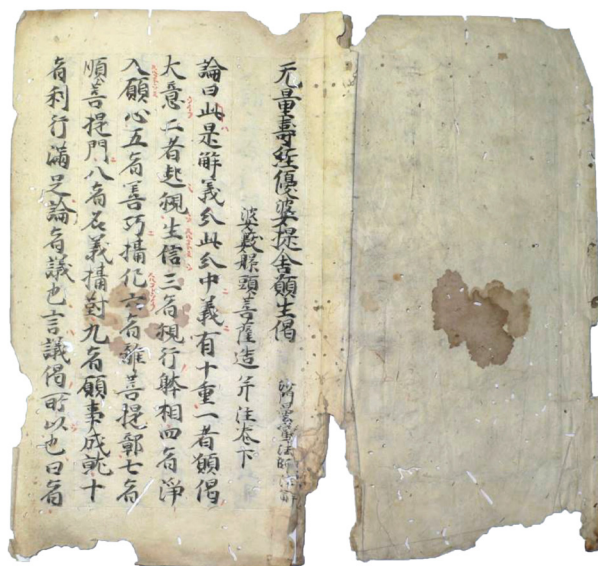 无量壽經優婆提舍願生偈
婆藪縣頭菩薩造并注卷下
沙門曇鸞法師註解
論曰此是解義分此分中義有十重一者願偈
大意二者起觀生信三者觀行躰相四者淨
入願心五者善巧攝化六者離菩提障七者
順菩提門八者名義攝對九者願事成就十
者利行滿足論者議也言議偈所以也曰者